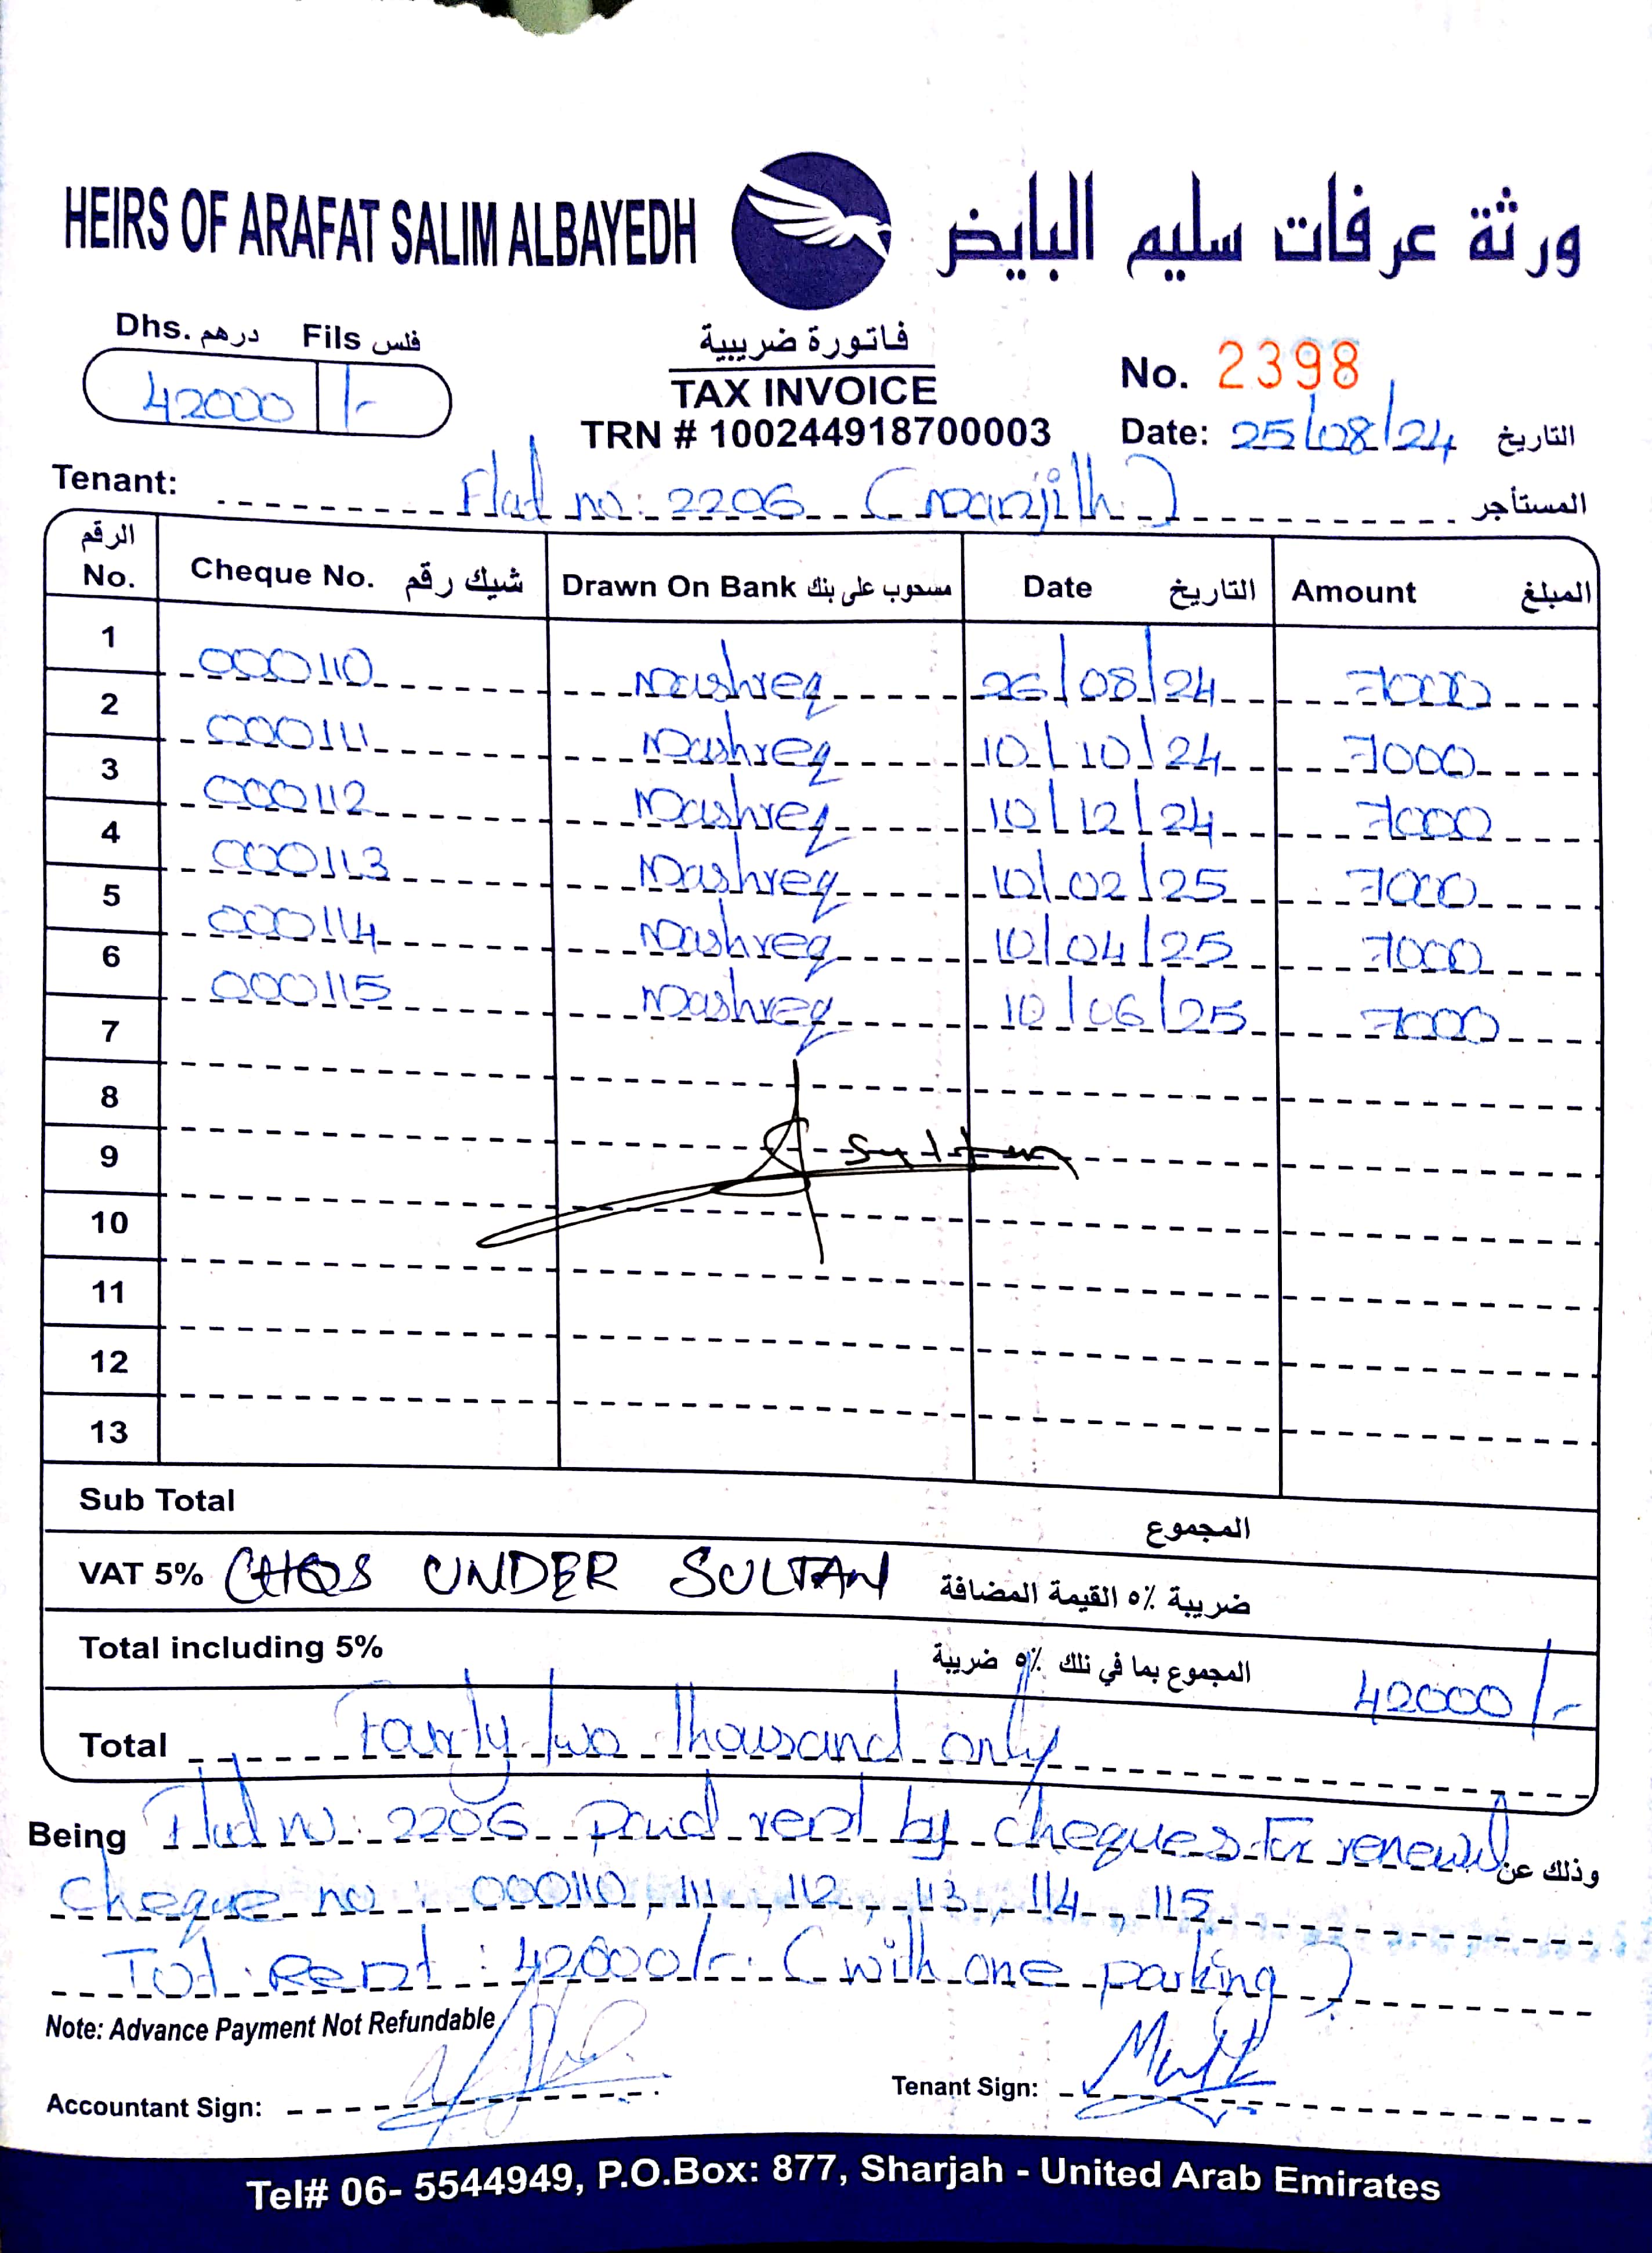 HEIRS OF ARAFAT SALIM ALBAYEDH ورثة عرفات سليم البايض
Dhs. درهم Fils فلس
42000 /-
فاتورة ضريبية
TAX INVOICE
TRN # 100244918700003
No. 2398
Date: 25/08/24 التاريخ
Tenant: Flat no: 2206 (Ranjith) المستأجر
الرقم No. Cheque No. شيك رقم Drawn On Bank مسحوب على بنك Date التاريخ Amount المبلغ
1 000110 Mashreq 26/08/24 7000
2 000111 Mashreq 10/10/24 7000
3 000112 Mashreq 10/12/24 7000
4 000113 Mashreq 10/02/25 7000
5 000114 Mashreq 10/04/25 7000
6 000115 Mashreq 10/06/25 7000
7
8
9 Sultan
10
11
12
13
Sub Total المجموع
VAT 5% CHQS UNDER SULTAN ضريبة ٥٪ القيمة المضافة
Total including 5% المجموع بما في ذلك ٥٪ ضريبة 42000/-
Total Fourty two thousand only
Being Flat no: 2206 Paid rent by cheques For renewal وذلك عن
Cheque no: 000110, 111, 112, 113, 114, 115
Tot. Rent: 42000/- (with one parking)
Note: Advance Payment Not Refundable
Accountant Sign: Tenant Sign:
Tel# 06- 5544949, P.O.Box: 877, Sharjah - United Arab Emirates